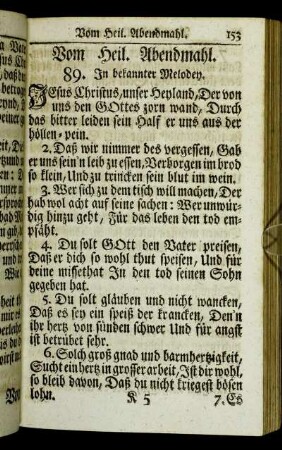 Vom Heil. Abendmahl. 153
Vom Heil. Abendmahl.
89. In bekannter Melodey.
JEsus Christus, unser Heyland, Der von
uns den GOttes zorn wand, Durch
das bitter leiden sein Half er uns aus der
höllen-pein.
2. Daß wir nimmer des vergessen, Gab
er uns sein'n leib zu essen, Verborgen im brod
so klein, Und zu trincken sein blut im wein.
3. Wer sich zu dem tisch will machen, Der
hab wol acht auf seine sachen: Wer unwür-
dig hinzu geht, Für das leben den tod em-
pfäht.
4. Du solt GOtt den Vater preisen,
Daß er dich so wohl thut speisen, Und für
deine missethat In den tod seinen Sohn
gegeben hat.
5. Du solt gläuben und nicht wancken,
Daß es sey ein speiß der krancken, Den'n
ihr hertz von sünden schwer Und für angst
ist betrübet sehr.
6. Solch groß gnad und barmhertzigkeit,
Sucht ein hertz in grosser arbeit, Ist dir wohl,
so bleib davon, Daß du nicht kriegest bösen
lohn.
K 5 7. Es